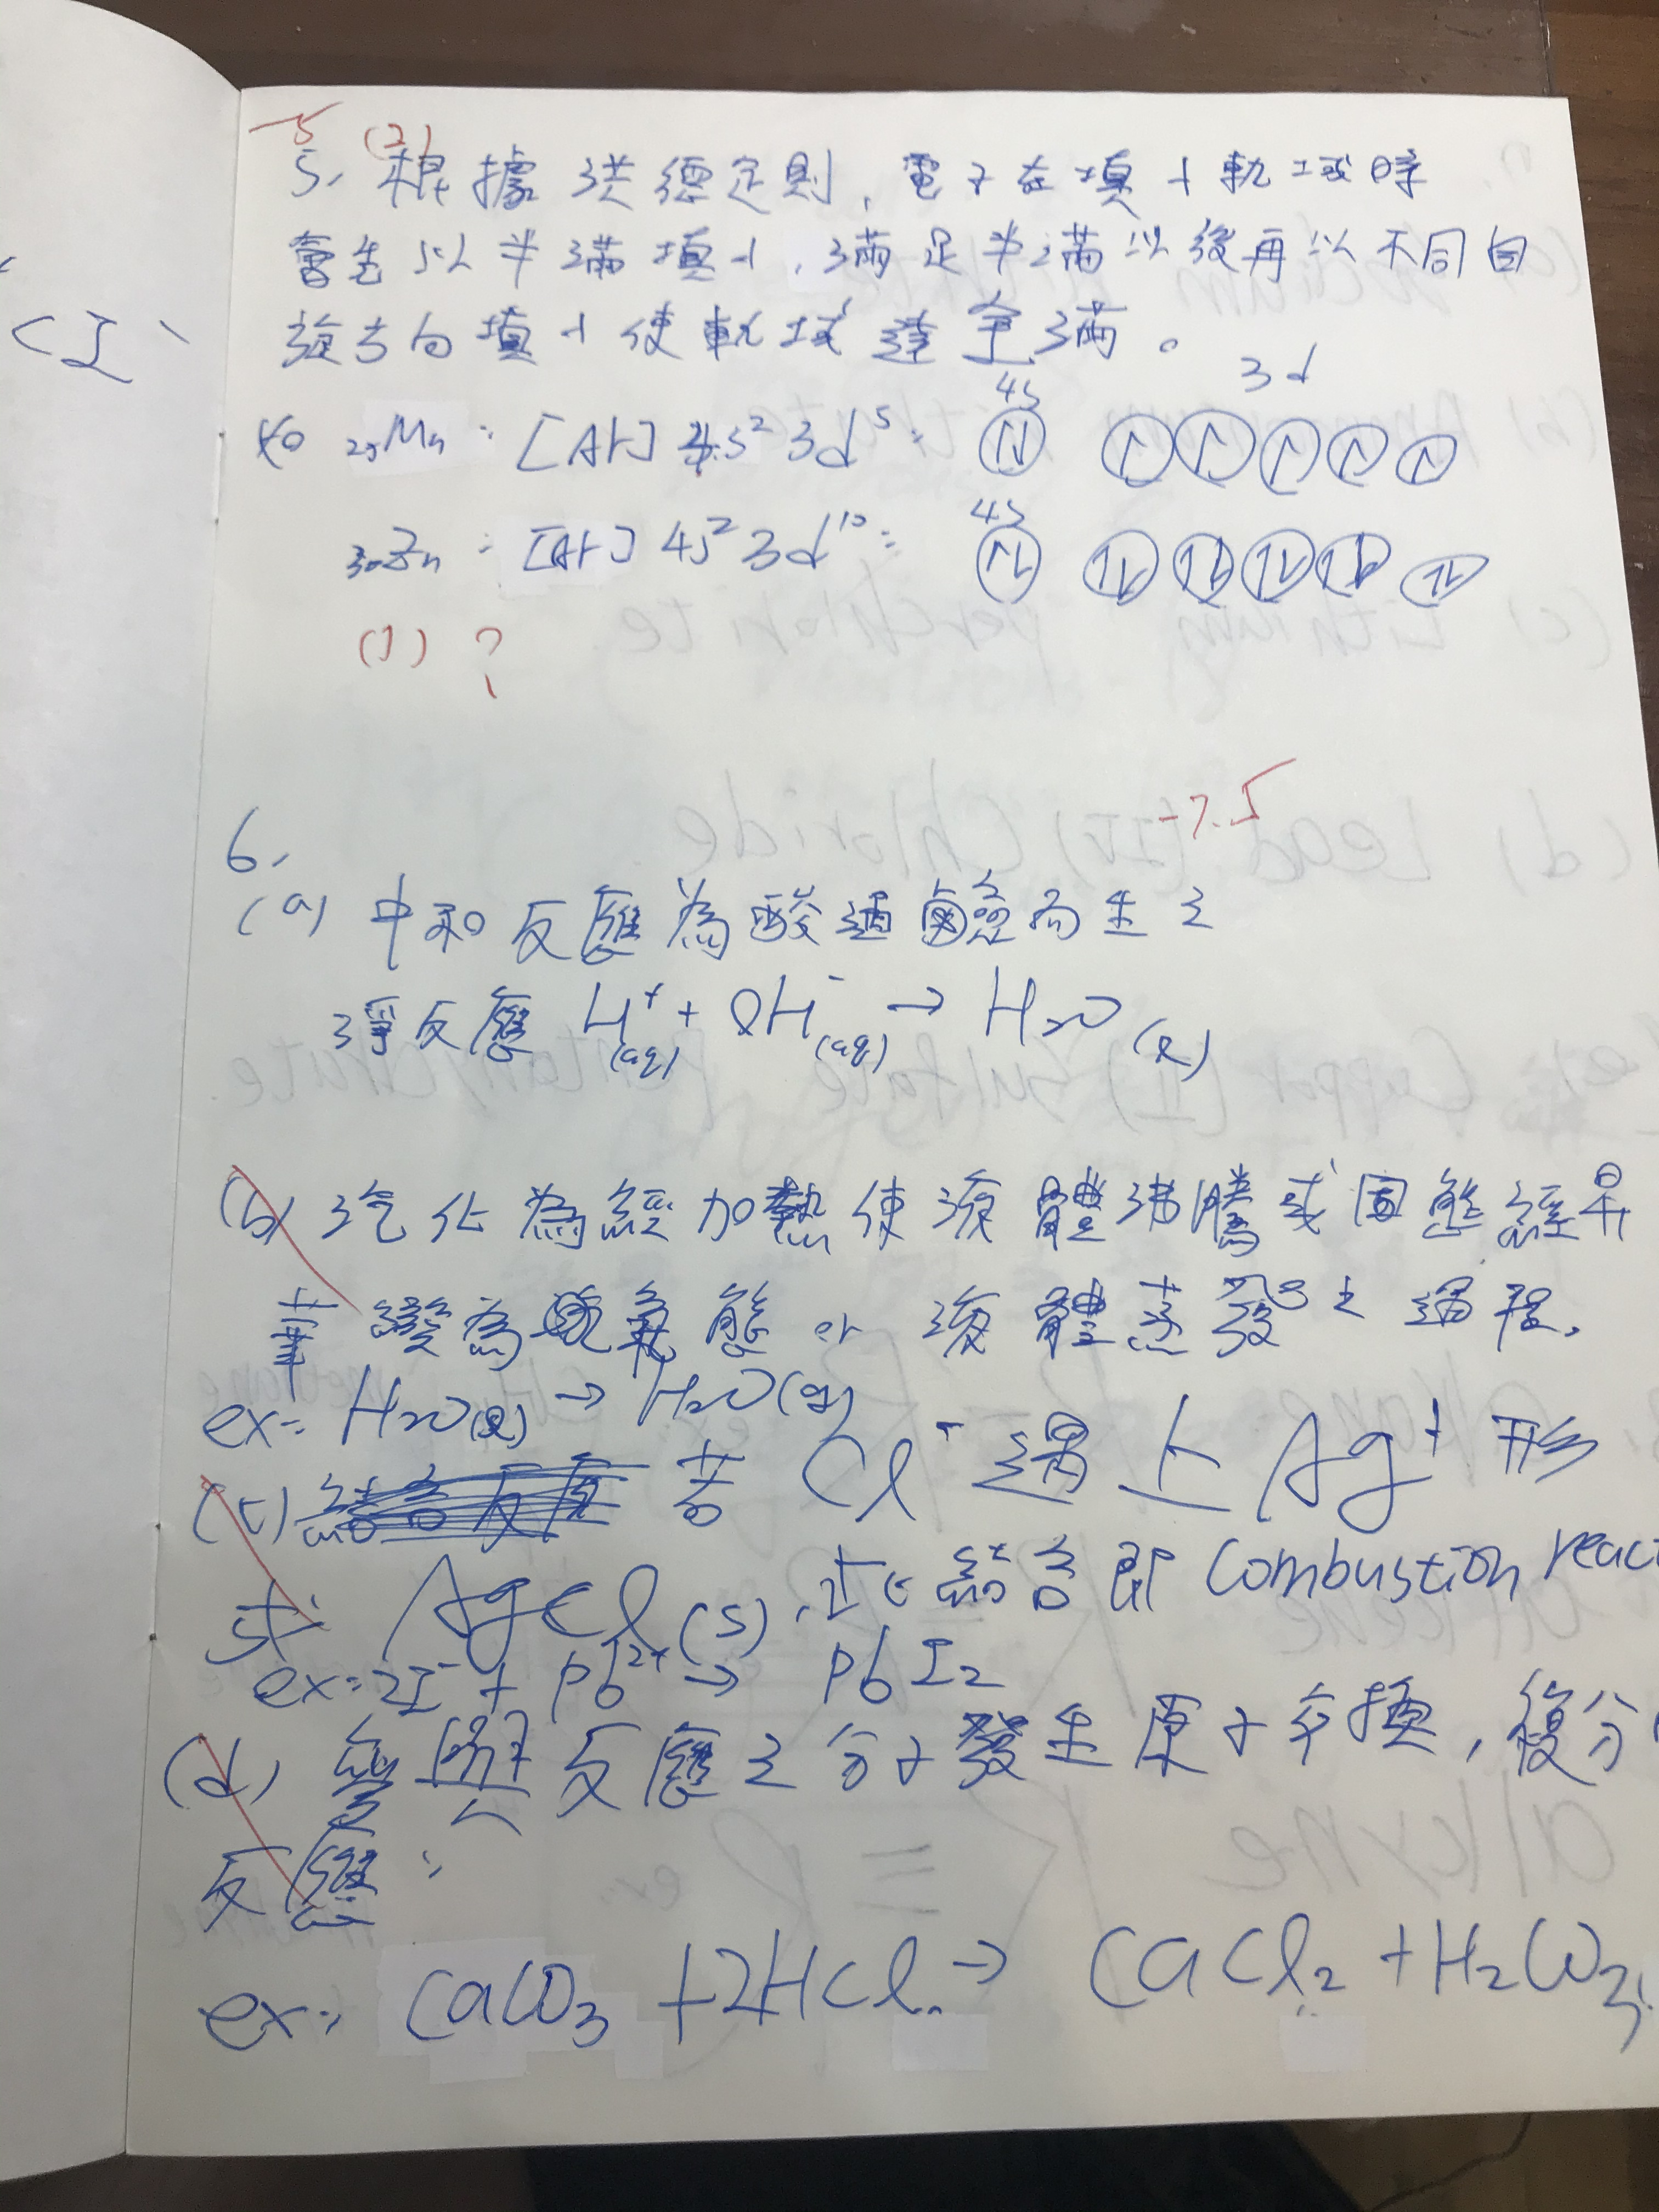 -5 (2)
5. 根據洪德定則, 電子在填入軌域時
會先以半滿填入, 滿足半滿以後再以不同自
旋方向填入使軌域達全滿。
如 25Mn : [Ar] 4s² 3d⁵ : 4s 3d
30Zn : [Ar] 4s² 3d¹⁰ : 4s
(1) ?
-7.5
6.
(a) 中和反應為酸遇鹼而生之
淨反應 H⁺(aq) + OH⁻(aq) → H₂O(ℓ)
(b) 汽化為經加熱使液體沸騰或固態經昇
華變為氣態 or 液體蒸發之過程.
ex: H₂O(ℓ) → H₂O(g)
(c) 若 Cl⁻ 遇上 Ag⁺ 形
式 AgCl(s), 此結合即 Combustion react
ex: 2I⁻ + Pb²⁺ → PbI₂
(d) 參與反應之分子發生原子交換, 複分
反應:
ex: CaCO₃ + 2HCl → CaCl₂ + H₂CO₃
(I)